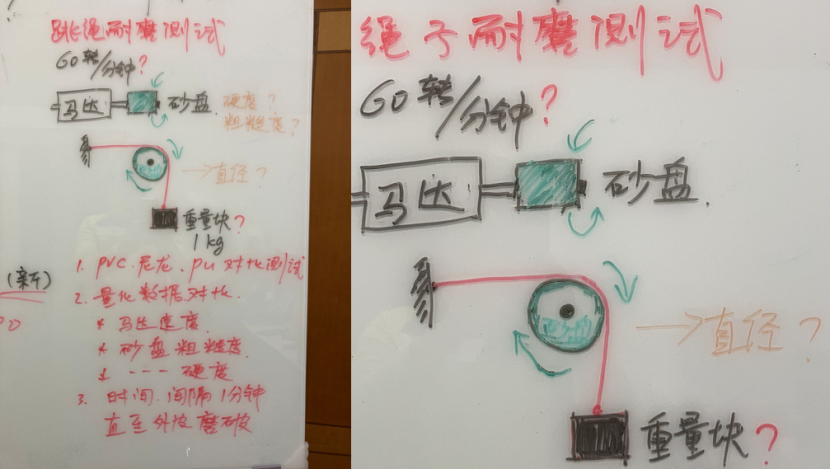 跳绳耐磨测试
60转/分钟?
马达
砂盘
硬度?
粗糙度?
→直径?
重量块?
1kg
1. PVC.尼龙.PU对比测试
(新)
2. 量化数据对比.
* 马达速度.
* 砂盘粗糙度.
* ---- 硬度
3. 时间.间隔1分钟
直至外皮磨破
绳子耐磨测试
60转/分钟?
马达
砂盘.
→直径?
重量块?